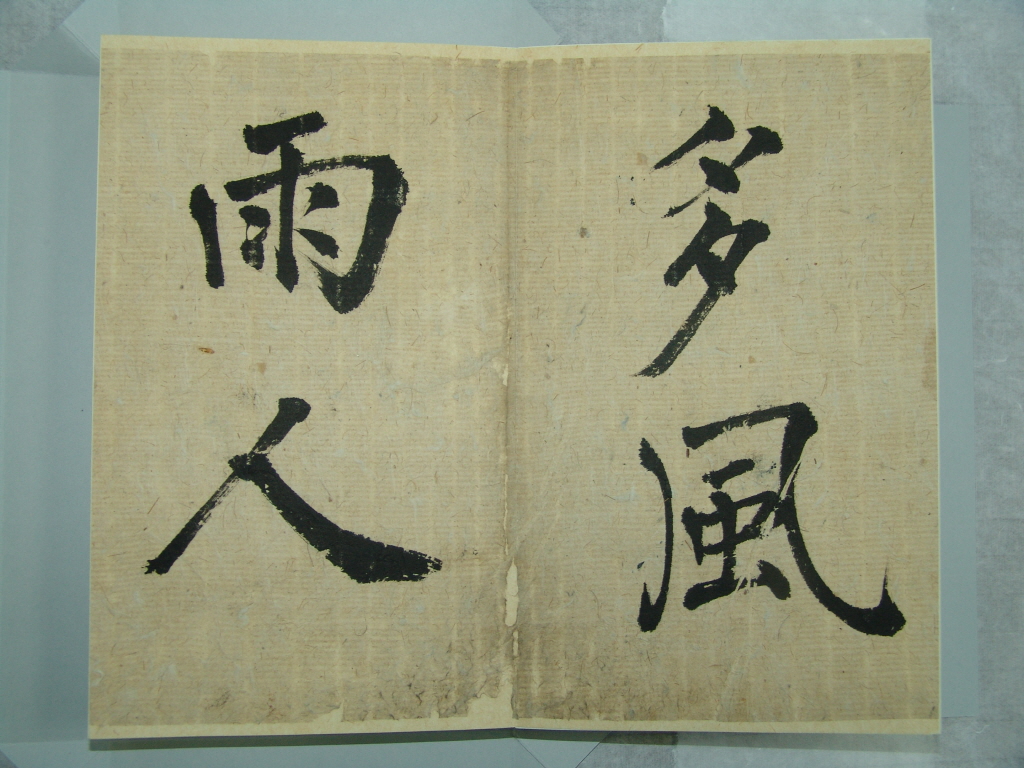 多風
雨人